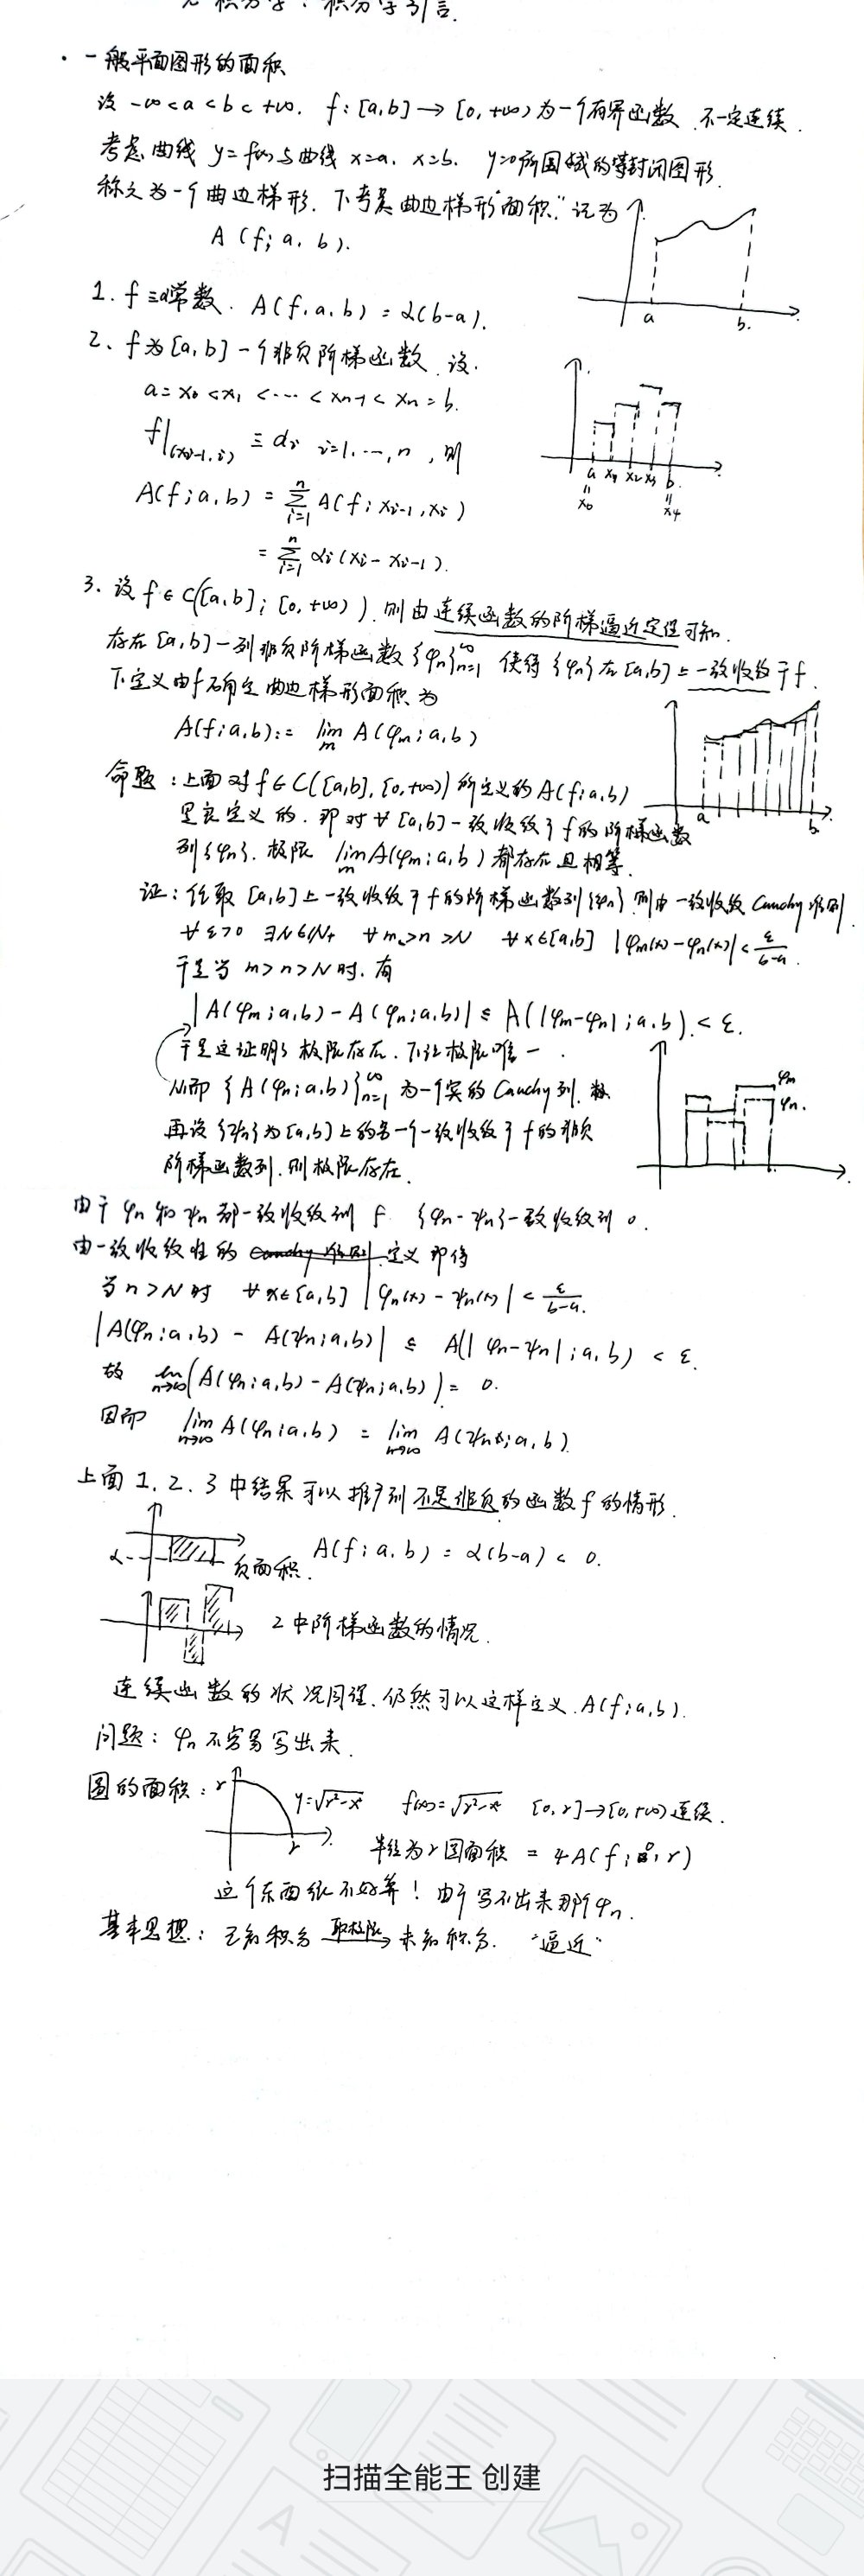 积分学：积分学引言.
· 一般平面图形的面积
设 -∞<a<b<+∞. f:[a,b]→[0,+∞) 为一个有界函数, 不一定连续.
考虑曲线 y=f(x) 与曲线 x=a. x=b. y=0 所围成的封闭图形,
称之为一个曲边梯形. 下考虑曲边梯形"面积". 记为
A(f; a, b).
a b.
1. f≡α常数. A(f, a, b) = α(b-a).
2. f为[a,b]一个非负阶梯函数, 设.
a=x₀<x₁<…<xn-1<xn=b.
f|(xi-1,i) ≡ αi i=1,…,n, 则
A(f; a, b) = Σ_{i=1}^{n} A(f; xi-1, xi)
= Σ_{i=1}^{n} αi(xi - xi-1).
a x₁ x₂ x₃ b.
= =
x₀ x₄
3. 设 f∈C([a,b]; [0,+∞)). 则由连续函数的阶梯逼近定理可知.
存在[a,b]一列非负阶梯函数{φn}_{n=1}^{∞} 使得{φn}在[a,b]上一致收敛于f.
下定义由f确定曲边梯形面积为
A(f; a, b) := lim_m A(φm; a, b)
a b
命题: 上面对f∈C([a,b], [0,+∞)) 所定义的A(f; a, b)
是良定义的. 即对∀[a,b]一致收敛于f的阶梯函数
列{φn}. 极限 lim_m A(φm; a, b) 都存在且相等.
证: 任取[a,b]上一致收敛于f的阶梯函数列{φn}. 则由一致收敛Cauchy准则
∀ε>0 ∃N∈N₊ ∀m>n>N ∀x∈[a,b] |φm(x)-φn(x)|<ε/(b-a).
于是当 m>n>N时. 有
|A(φm; a, b) - A(φn; a, b)| ≤ A(|φm-φn|; a, b). < ε.
于是这证明了极限存在. 下证极限唯一.
从而{A(φn; a, b)}_{n=1}^{∞} 为一个实的Cauchy列.
φm
φn.
再设{ψn}为[a,b]上的另一个一致收敛于f的非负
阶梯函数列. 则极限存在.
由于φn和ψn都一致收敛到f. {φn-ψn}一致收敛到0.
由一致收敛性的 Cauchy准则 定义即得
当n>N时 ∀x∈[a,b] |φn(x)-ψn(x)|<ε/(b-a).
|A(φn; a, b) - A(ψn; a, b)| ≤ A(|φn-ψn|; a, b) < ε.
故 lim_{n→∞}(A(φn; a, b) - A(ψn; a, b)) = 0.
因而 lim_{n→∞} A(φn; a, b) = lim_{n→∞} A(ψn; a, b).
上面1.2.3中结果可以推广到不是非负的函数f的情形.
α 负面积. A(f; a, b) = α(b-a) < 0.
2中阶梯函数的情况.
连续函数的状况同理. 仍然可以这样定义. A(f; a, b).
问题: φn不容易写出来.
圆的面积: r y=√(r²-x²) f(x)=√(r²-x²) [0,r]→[0,+∞)连续.
r 半径为r圆面积 = 4A(f; 0, r)
这个东西很不好算! 由于写不出来那个φn.
基本思想: 已有积分 取极限→ 未知积分. "逼近"
扫描全能王 创建